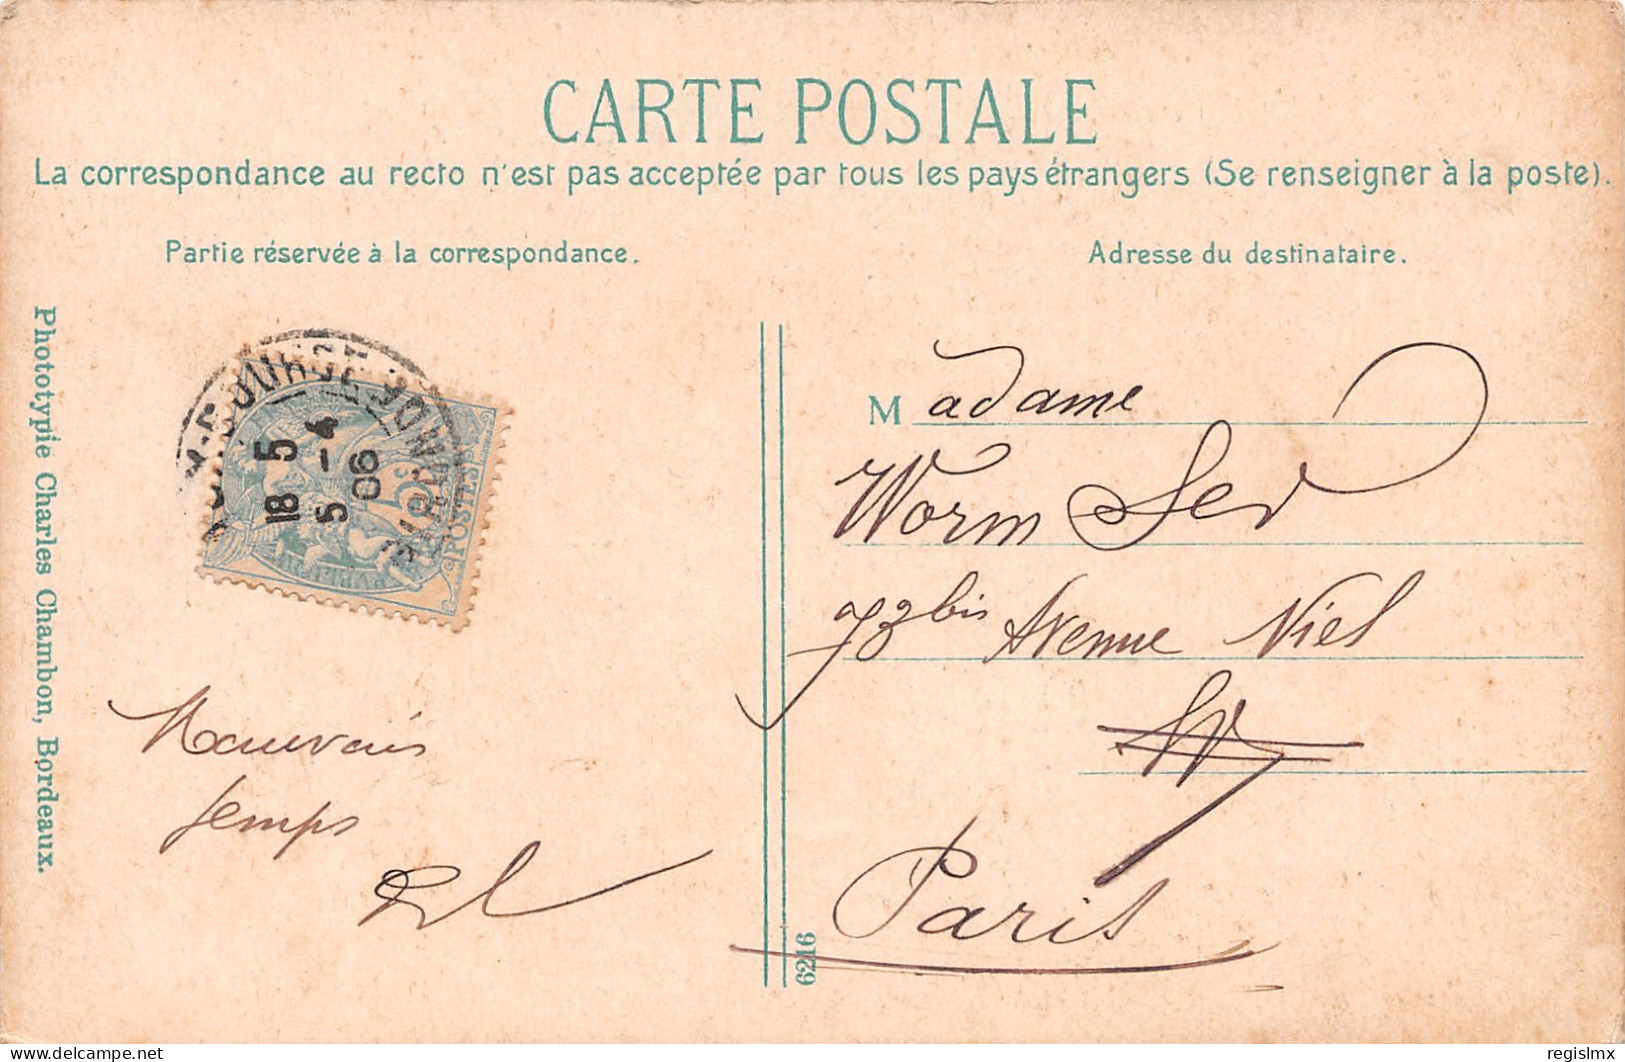 CARTE POSTALE
La correspondance au recto n'est pas acceptée par tous les pays étrangers (Se renseigner à la poste).
Partie réservée à la correspondance.
Adresse du destinataire.
Phototypie Charles Chambon, Bordeaux.
18 5
5 - 4
06
GIRONDE
5c
POSTES
Mauvais
temps
Madame
Worm Sev
93 bis Avenue Niel
Paris
6216
delcampe.net
regislmx